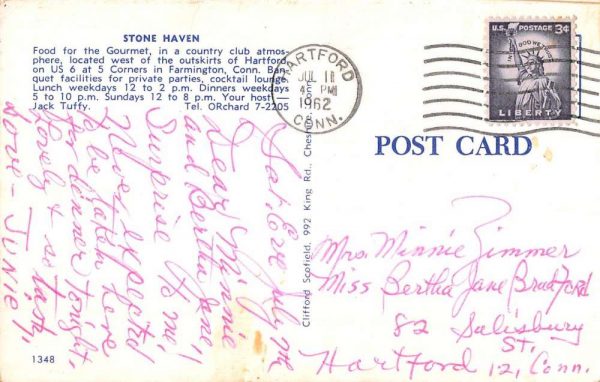 STONE HAVEN
Food for the Gourmet, in a country club atmos-
phere, located west of the outskirts of Hartford
on US 6 at 5 Corners in Farmington, Conn. Ban-
quet facilities for private parties, cocktail lounge.
Lunch weekdays 12 to 2 p.m. Dinners weekdays
5 to 10 p.m. Sundays 12 to 8 p.m. Your host—
Jack Tuffy. Tel. ORchard 7-2205
Sat. Eve. July 7th
Dear Minnie
and Bertha Jane,
Surprise to me!
Never expected
to be taken here
for dinner tonight.
Lovely & so tasty.
Love - JUNIE,
1348
Clifford Scofield, 992 King Rd., Conn.
HARTFORD
JUL 11
4 PM
1962
CONN.
U.S. POSTAGE 3¢
IN GOD WE TRUST
LIBERTY
POST CARD
Mrs. Minnie Zimmer
Miss Bertha Jane Bradford
82 Salisbury
St.
Hartford 12, Conn.